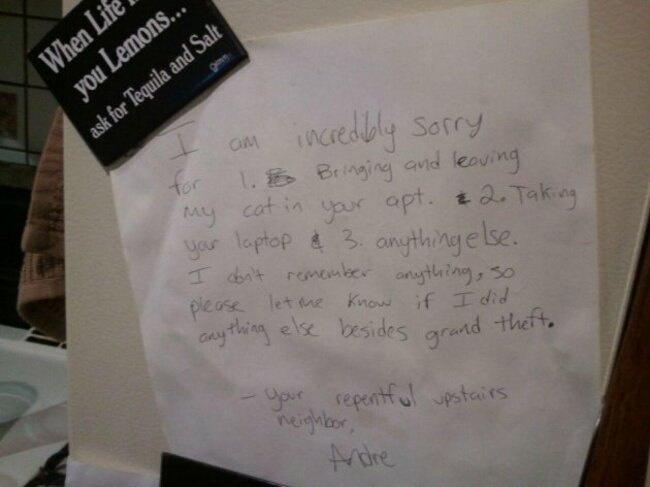 When Life
you Lemons...
ask for Tequila and Salt
I am incredibly sorry
for 1. Bringing and leaving
my cat in your apt. & 2. Taking
your laptop & 3. anything else.
I don't remember anything, so
please let me know if I did
anything else besides grand theft.
- your repentful upstairs
neighbor,
Andre